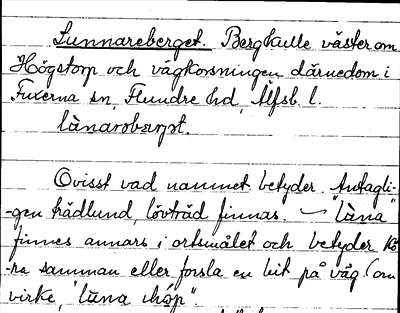 Lunnareberget. Bergkulle väster om
Högstorp och vägkorsningen därnedom i
Fuxerna sn, Flundre hd, Älfsb. l.
lùnarobærjet.
Ovisst vad namnet betyder. Antagli-
-gen trädlund, lövträd finnas. — "lùna"
finnes annars i ortsmålet och betyder kö-
-ra samman eller forsla en bit på väg (om
virke, "lùna ihóp".